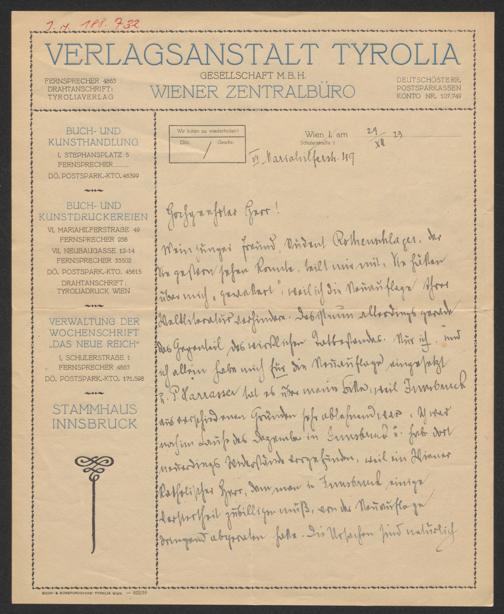 I. N. 188.732
VERLAGSANSTALT TYROLIA
GESELLSCHAFT M.B.H.
WIENER ZENTRALBÜRO
FERNSPRECHER 4863
DRAHTANSCHRIFT:
TYROLIAVERLAG
DEUTSCHÖSTERR.
POSTSPARKASSEN
KONTO NR. 127.749
BUCH- UND
KUNSTHANDLUNG
I, STEPHANSPLATZ 5
FERNSPRECHER
DÖ. POSTSPARK.-KTO. 46399
BUCH- UND
KUNSTDRUCKEREIEN
VI, MARIAHILFERSTRASSE 49
FERNSPRECHER 238
VII, NEUBAUGASSE 12-14
FERNSPRECHER 33502
DÖ. POSTSPARK.-KTO. 45615
DRAHTANSCHRIFT:
TYROLIADRUCK WIEN
VERWALTUNG DER
WOCHENSCHRIFT
„DAS NEUE REICH“
I, SCHULERSTRASSE 1
FERNSPRECHER 4863
DÖ. POSTSPARK.-KTO. 171.598
STAMMHAUS
INNSBRUCK
Wir bitten zu wiederholen!
Wien I, am 29/XII 23
Schulerstraße 1
VI. Mariahilferstr. 49
Hochgeehrter Herr!
Mein junger Freund, Student, der
Sie gestern sehen konnte, teilt mir mit, Sie hätten
über mich „gewettert“, weil ich die Neuauflage Ihrer
Weltliteratur verhindere. Das ist nun allerdings gerade
das Gegenteil des wirklichen Tatbestandes. Nur ich und
ich allein habe mich für die Neuauflage eingesetzt
u. P. hat es über mein, weil Innsbruck
aus verschiedenen Gründen sehr ablehnend war. Ich war
nochim Laufe des Dezember in Innsbruck u. hab dort
neuerdings Widerstände vorgefunden, weil ein Wiener
katholischer Herr, dem man in Innsbruck einige
zubilligen muß, von der Neuauflage
dringend abgeraten hatte. Die Ursachen sind natürlich
BUCH- & KUNSTDRUCKEREI TYROLIA WIEN